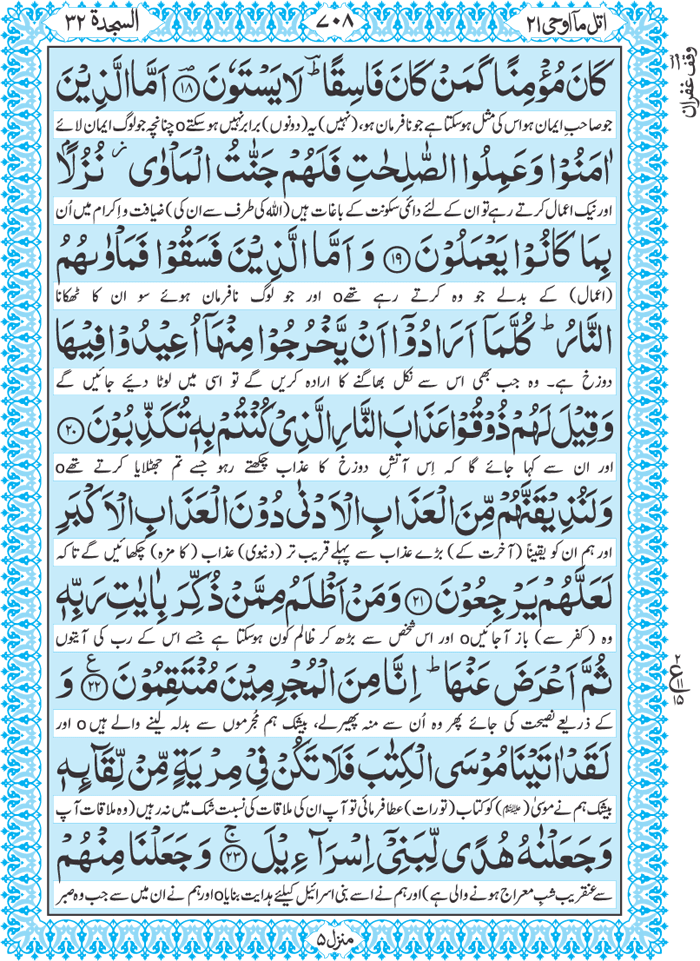 اتل ماۤ اوحی ۲۱
۷۰۸
السجدة ۳۲
وقف غفران
كَانَ مُؤْمِنًا كَمَنْ كَانَ فَاسِقًا ؕ لَا يَسْتَوٗنَ ﴿۱۸﴾ اَمَّا الَّذِيْنَ
جو صاحبِ ایمان ہو اس کی مثل ہو سکتا ہے جو نافرمان ہو، (نہیں) یہ (دونوں) برابر نہیں ہو سکتےo چنانچہ جو لوگ ایمان لائے
اٰمَنُوْا وَ عَمِلُوا الصّٰلِحٰتِ فَلَهُمْ جَنّٰتُ الْمَاْوٰى ؗ نُزُلًۢا
اور نیک اعمال کرتے رہے تو ان کے لئے دائمی سکونت کے باغات ہیں (اللہ کی طرف سے ان کی) ضیافت و اِکرام میں اُن
بِمَا كَانُوْا يَعْمَلُوْنَ ﴿۱۹﴾ وَ اَمَّا الَّذِيْنَ فَسَقُوْا فَمَاْوٰىهُمُ
(اعمال) کے بدلے جو وہ کرتے رہے تھےo اور جو لوگ نافرمان ہوئے سو ان کا ٹھکانا
النَّارُ ؕ كُلَّمَاۤ اَرَادُوْۤا اَنْ يَّخْرُجُوْا مِنْهَاۤ اُعِيْدُوْا فِيْهَا
دوزخ ہے۔ وہ جب بھی اس سے نکل بھاگنے کا ارادہ کریں گے تو اسی میں لوٹا دیئے جائیں گے
وَ قِيْلَ لَهُمْ ذُوْقُوْا عَذَابَ النَّارِ الَّذِيْ كُنْتُمْ بِهٖ تُكَذِّبُوْنَ ﴿۲۰﴾
اور ان سے کہا جائے گا کہ اِس آتشِ دوزخ کا عذاب چکھتے رہو جسے تم جھٹلایا کرتے تھےo
وَ لَنُذِيْقَنَّهُمْ مِّنَ الْعَذَابِ الْاَدْنٰى دُوْنَ الْعَذَابِ الْاَكْبَرِ
اور ہم ان کو یقیناً (آخرت کے) بڑے عذاب سے پہلے قریب تر (دنیوی) عذاب (کا مزہ) چکھائیں گے تاکہ
لَعَلَّهُمْ يَرْجِعُوْنَ ﴿۲۱﴾ وَ مَنْ اَظْلَمُ مِمَّنْ ذُكِّرَ بِاٰيٰتِ رَبِّهٖ
وہ (کفر سے) باز آجائیںo اور اس شخص سے بڑھ کر ظالم کون ہو سکتا ہے جسے اس کے رب کی آیتوں
ثُمَّ اَعْرَضَ عَنْهَا ؕ اِنَّا مِنَ الْمُجْرِمِيْنَ مُنْتَقِمُوْنَ ﴿۲۲﴾ ع وَ
کے ذریعے نصیحت کی جائے پھر وہ اُن سے منہ پھیر لے، بیشک ہم مُجرموں سے بدلہ لینے والے ہیںo اور
لَقَدْ اٰتَيْنَا مُوْسَى الْكِتٰبَ فَلَا تَكُنْ فِيْ مِرْيَةٍ مِّنْ لِّقَآئِهٖ
بیشک ہم نے موسٰی (ﷺ) کو کتاب (تورات) عطا فرمائی تو آپ ان کی ملاقات کی نسبت شک میں نہ رہیں (وہ ملاقات آپ
وَ جَعَلْنٰهُ هُدًى لِّبَنِيْۤ اِسْرَآءِيْلَ ﴿۲۳﴾ ج وَ جَعَلْنَا مِنْهُمْ
سے عنقریب شبِ معراج ہونے والی ہے) اور ہم نے اسے بنی اسرائیل کیلئے ہدایت بنایاo اور ہم نے ان میں سے جب وہ صبر
منزل ۵